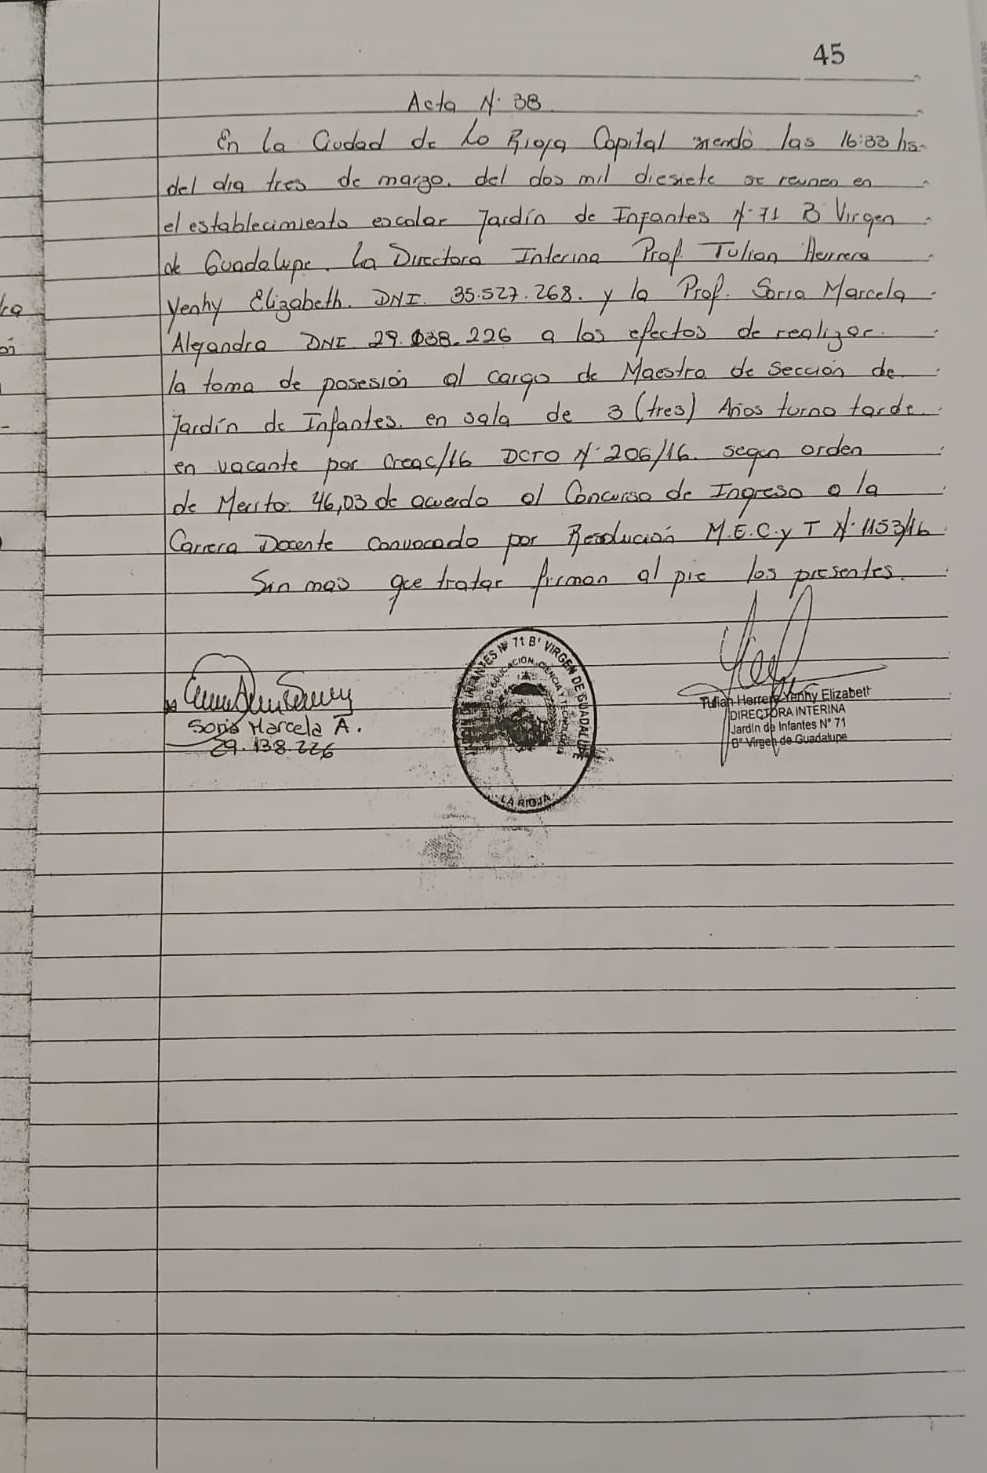 45
Acta N° 38
En la Ciudad de La Rioja Capital siendo las 16:33 hs.
del dia tres de marzo. del dos mil diesiete se reunen en
el establecimiento escolar Jardín de Infantes N° 71 B° Virgen
de Guadalupe. La Directora Interina Prof. Tulian Herrera
Yenhy Elizabeth. DNI. 35.527.268. y la Prof. Soria Marcela
Alejandra DNI 29.138.226 a los efectos de realizar
la toma de posesión al cargo de Maestra de Sección de
Jardín de Infantes. en sala de 3 (tres) Años turno tarde.
en vacante por Creac/16 DCTO N° 206/16. segun orden
de Merito: 46,03 de acuerdo al Concurso de Ingreso a la
Carrera Docente Convocado por Resolución M.E.C.y T N° 1153/16
Sin mas que tratar firman al pie los presentes.
Soria Marcela A.
29.138.226
JARDIN DE INFANTES N° 71 B° VIRGEN DE GUADALUPE
DE EDUCACION, CIENCIA Y TECNOLOGIA
LA RIOJA
Tulian Herrera Yenhy Elizabeth
DIRECTORA INTERINA
Jardín de Infantes N° 71
B° Virgen de Guadalupe